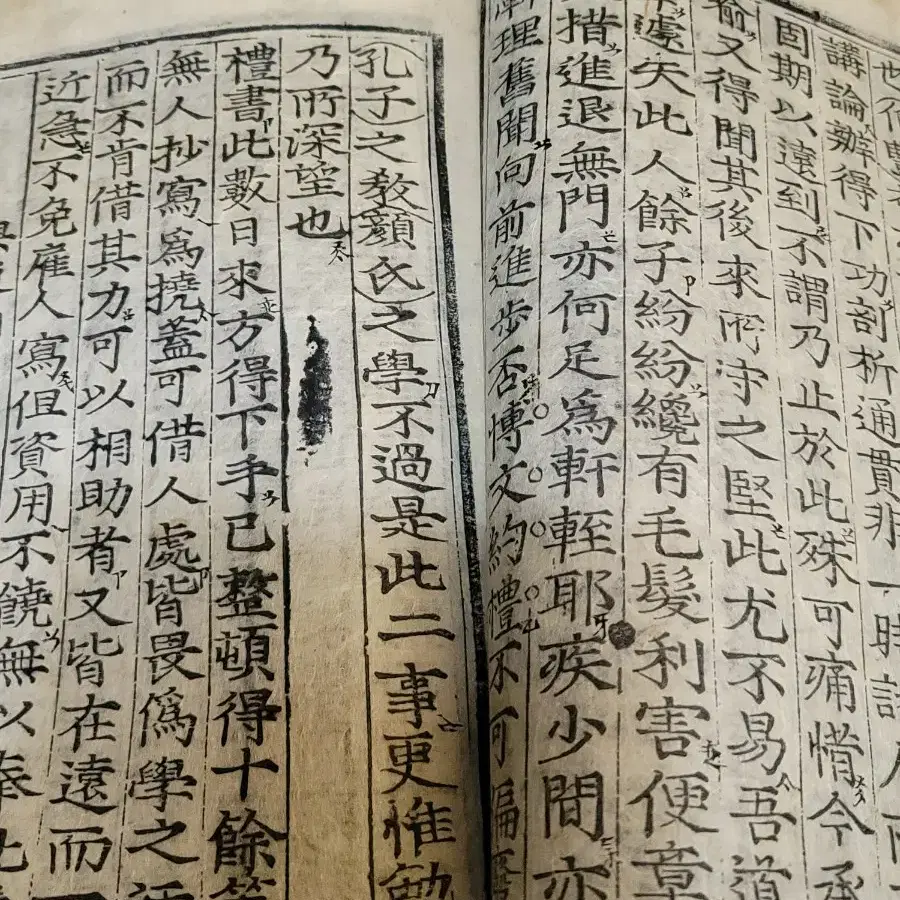 講論辦得下功剖析通貫非一時
固期以遠到不謂乃止於此殊可痛惜今承
喻又得聞其後來所守之堅此尤不易吾道
遽失此人餘子紛紛纔有毛髮利害便章
措進退無門亦何足為軒輊耶疾少間亦
理舊聞向前進步否博文約禮不可偏
孔子之教顔氏之學不過是此二事更惟勉
乃所深望也
禮書此數日來方得下手已整頓得十餘
無人抄寫為撓蓋可借人處皆畏偽學之
而不肯借其力可以相助者又皆在遠而
近急不免雇人寫但資用不饒無以奉此